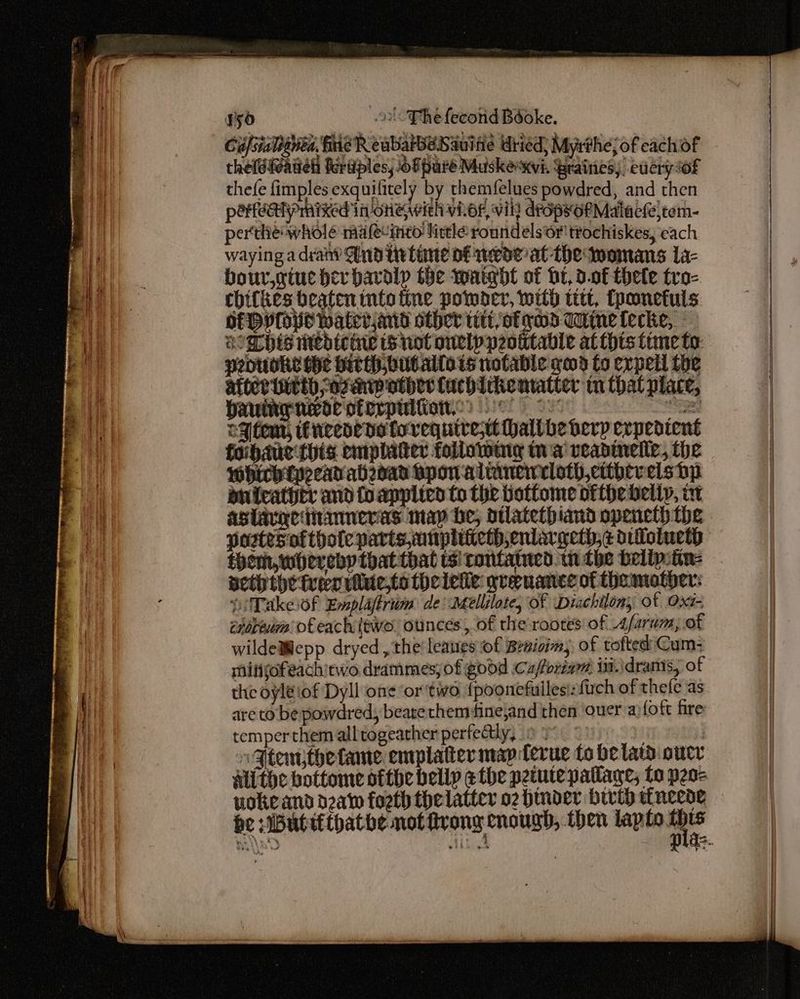 150 The second Booke.
Cassialignea, fine Reubarbe Sauine dried, Myrrhe, of each of
these seauen scruples, of pure Muske xvi. graines, euery of
these simples exquisitely by themselues powdred, and then
perfectly mixed in one, with vi. or, viij drops of Maluesе, tem-
per the whole masse into little roundels or trochiskes, each
waying a dram And in time of neede at the womans la-
bour, giue her hardly the waight of vi. d. of these tro-
chiskes beaten into fine powder, with iiii. spoonefuls
of Hysope water, and other iiii. of good Wine secke,
This medicine is not onely profitable at this time to
prouoke the birth, but also is notable good to expell the
after birth, or any other such like matter in that place,
hauing neede of expulsion.
Item, if neede do so require, it shall be very expedient
to haue this emplaster following in a readinesse, the
which spread abroad vpon a linnen cloth, either els vp
on leather and so applied to the bottome of the belly, in
as large manner as may be, dilateth and openeth the
portes of those parts, amplifieth, enlargeth, & dissolueth
them, whereby that that is contained in the belly fin-
deth the freer issue, to the lesse greeuance of the mother:
Take of Emplastrum de Mellilote, of Diachilon, of Oxi-
croreum of each (two ounces, of the rootes of Asarum, of
wilde Nepp dryed, the leaues of Benioim, of tosted Cum-
min, of each two drammes, of good Castorium iii. drams, of
the oyle of Dyll one or two spoonefulles: such of these as
are to be powdred, beate them fine, and then ouer a soft fire
temper them all togeather perfectly.
Item, the same emplaster may serue to be laid ouer
all the bottome of the belly & the priuie passage, to pro-
uoke and draw forth the latter or hinder birth if neede
be: But if that be not strong enough, then lay to this
pla-